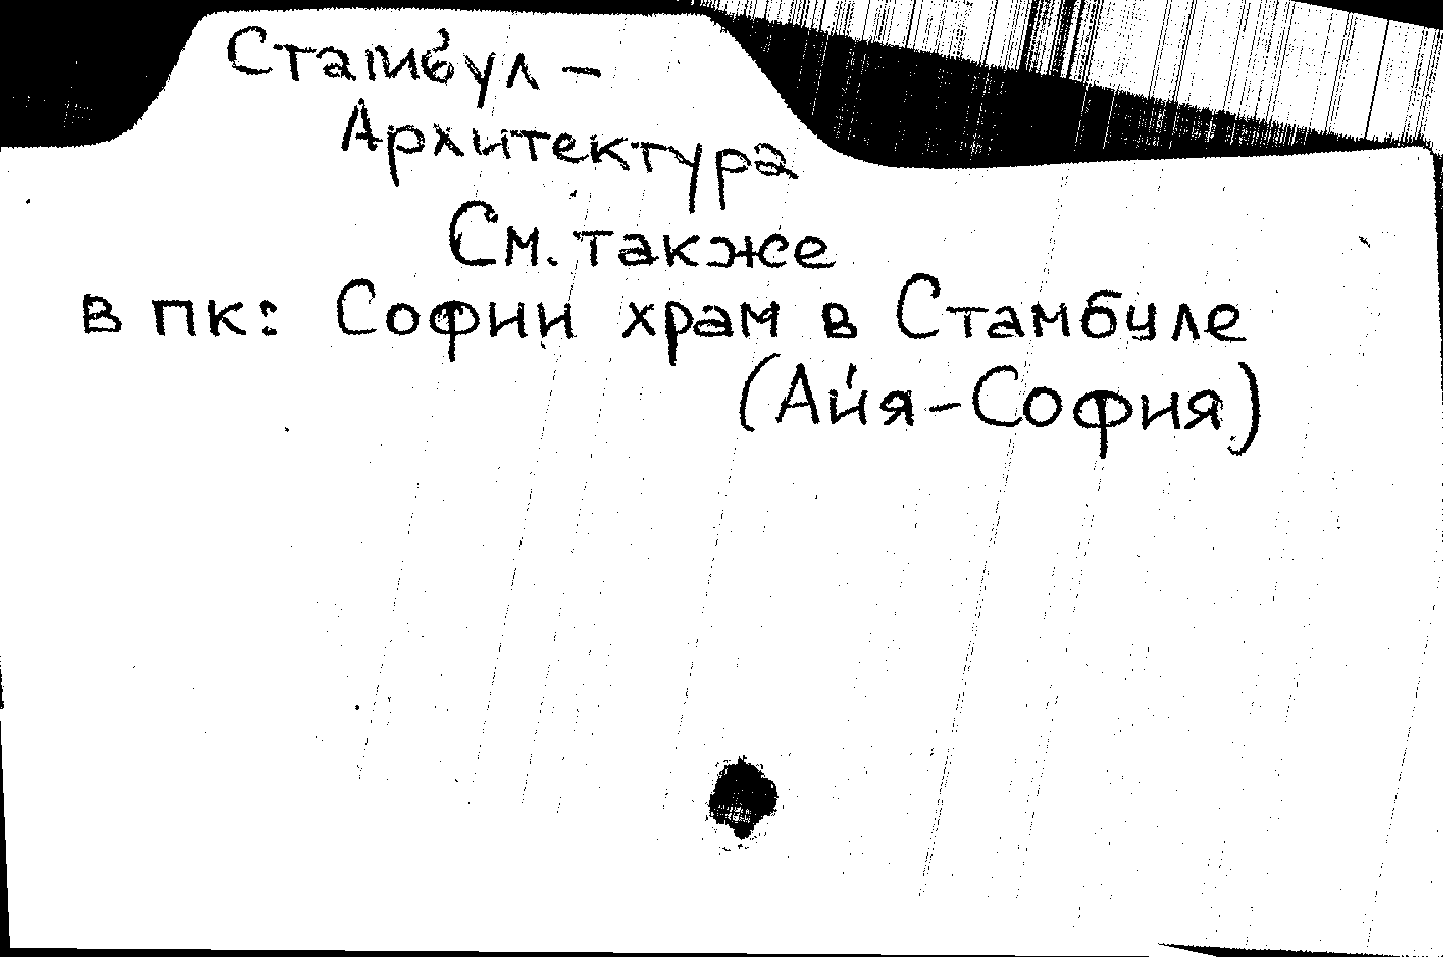 Стамбул –
Архитектура
См. также
в пк: Софии храм в Стамбуле
(Айя-София)